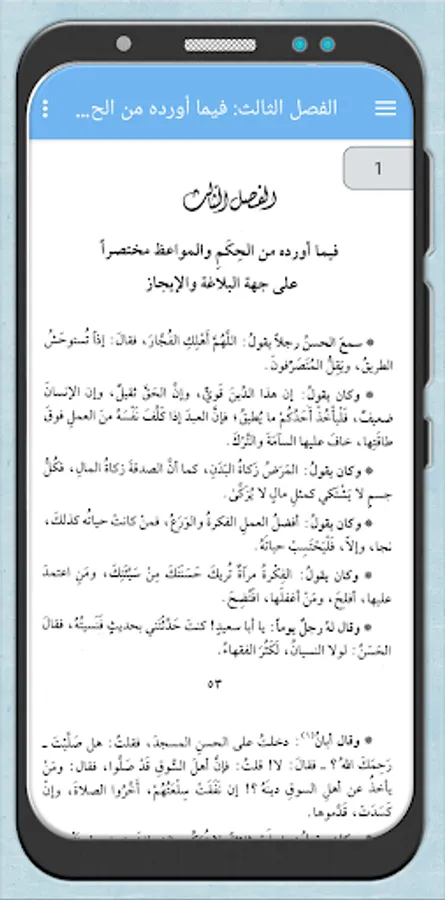 الفصل الثالث: فيما أورده من الح...
1
الفصل الثالث
فيما أورده من الحِكَمِ والمواعظ مختصراً
على جهة البلاغة والإيجاز
● سمعَ الحسنُ رجلاً يقولُ: اللَّهُمَّ أَهْلِكِ الفُجَّارَ، فقالَ: إذاً تُستوحَشُ
الطريقُ، ويَقِلُّ المُتَصَرِّفونَ.
● وكان يقولُ: إن هذا الدِّينَ قويٌّ، وإنَّ الحَقَّ ثقيلٌ، وإن الإنسانَ
ضعيفٌ، فَلْيَأْخُذْ أَحَدُكُمْ ما يُطيقُ؛ فإنَّ العبدَ إذا كَلَّفَ نَفْسَهُ منَ العملِ فوقَ
طاقَتِها، خافَ عليها السآمَةَ والتَّرْكَ.
● وكان يقولُ: المَرَضُ زَكاةُ البَدَنِ، كما أنَّ الصدقةَ زكاةُ المالِ، فكُلُّ
جسمٍ لا يَشْتكي كمثلِ مالٍ لا يُزَكَّىٰ.
● وكان يقولُ: أفضلُ العملِ الفكرةُ والوَرَعُ، فمنْ كانتْ حياتُه كذلكَ،
نجا، وإلاَّ، فَلْيَحْتَسِبْ حياتَهُ.
● وكان يقولُ: الفِكْرةُ مرآةٌ تُريكَ حَسَنَكَ مِنْ سَيِّئِكَ، ومَنِ اعتمدَ
عليها، أفلحَ، ومَنْ أغفلَها، افتُضِحَ.
● وقال لهُ رجلٌ يوماً: يا أبا سعيدٍ! كنتَ حَدَّثْتَني بحديثٍ فَنَسيتُهُ، فقالَ
الحَسَنُ: لولا النسيانُ، لَكَثُرَ الفقهاءُ.
٥٣
● وقال أبانُ(١): دخلتُ على الحسنِ المسجدَ، فقلتُ: هل صَلَّيْتَ ـ
رَحِمَكَ اللهُ؟ ـ فقالَ: لا! قلتُ: فإنَّ أهلَ السُّوقِ قَدْ صَلَّوا، فقال: ومَنْ
يأخذُ عن أهلِ السوقِ دينَهُ؟! إن نَفَقَتْ سِلْعَتُهُمْ، أَخَّرُوا الصلاةَ، وإنْ
كَسَدَتْ، قَدَّموها.